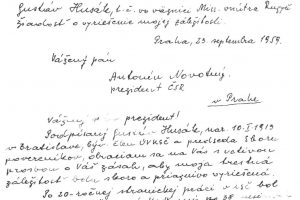 Gustáv Husák, t.č. vo väznici Min. vnútra Ruzyň
žiadosť o vyriešenie mojej záležitosti.
Praha, 23. septembra 1959.
Vážený pán
Antonín Novotný,
prezident ČSR
v Prahe
Vážený pán prezident!
Podpísaný Gustáv Husák, nar. 10.I.1913
v Bratislave, býv. člen ÚVKSČ a predseda Sboru
povereníkov, obraciam sa na Vás s vrelou
prosbou o Váš zásah, aby moja trestná
záležitosť bola skoro a priaznivo vyriešená.
Po 20-ročnej straníckej práci v KSČ bol